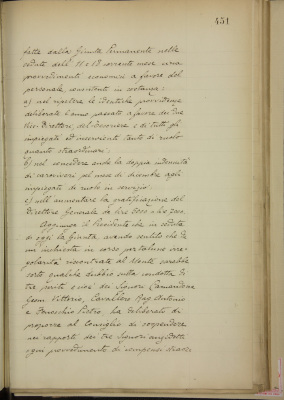 451
fatte dalla Giunta Permanente nelle
sedute dell' 11 e 18 corrente mese circa
provvedimenti economici a favore del
personale, consistenti in sostanza:
a) nel ripetere le identiche provvidenze
deliberate l'anno passato a favore dei due
Vice Direttori, del Tesoriere e di tutti gli
impiegati ed inservienti tanto di ruolo
quanto straordinari.
b) nel concedere anche la doppia indennità
di caroviveri pel mese di dicembre agli
impiegati di ruolo in servizio.
c) nell'aumentare la gratificazione del
Direttore Generale da lire 3000 a lire
Aggiunge il Presidente che in seduta
di oggi la Giunta, avendo sentito che da
una inchiesta in corso per talune irre-
golarità riscontrate al Monte sarebbe
sorto qualche dubbio sulla condotta di
tre periti e cioè dei Signori
Vittorio, Cavallero Rag. Antonio
e Pietro, ha deliberato di
proporre al Consiglio di sospendere
nei rapporti dei tre Signori anzidetti
ogni provvedimento di compensi straor-